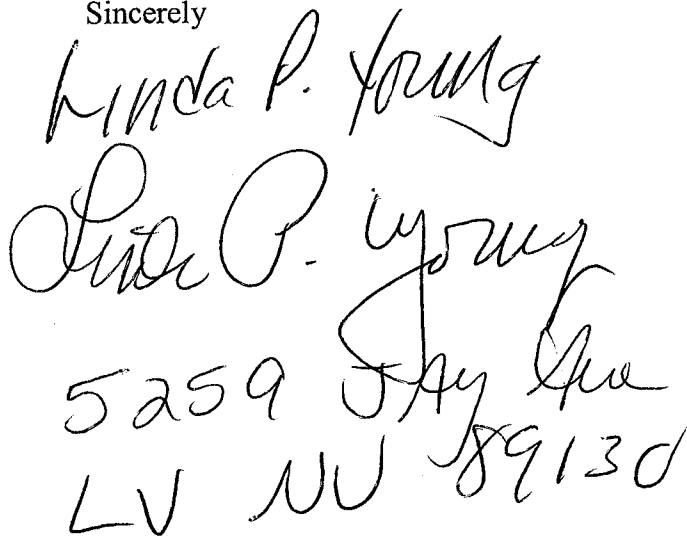 Sincerely
Linda P. Young
Linda P. Young
5259 Jay Ave
LV NV 89130